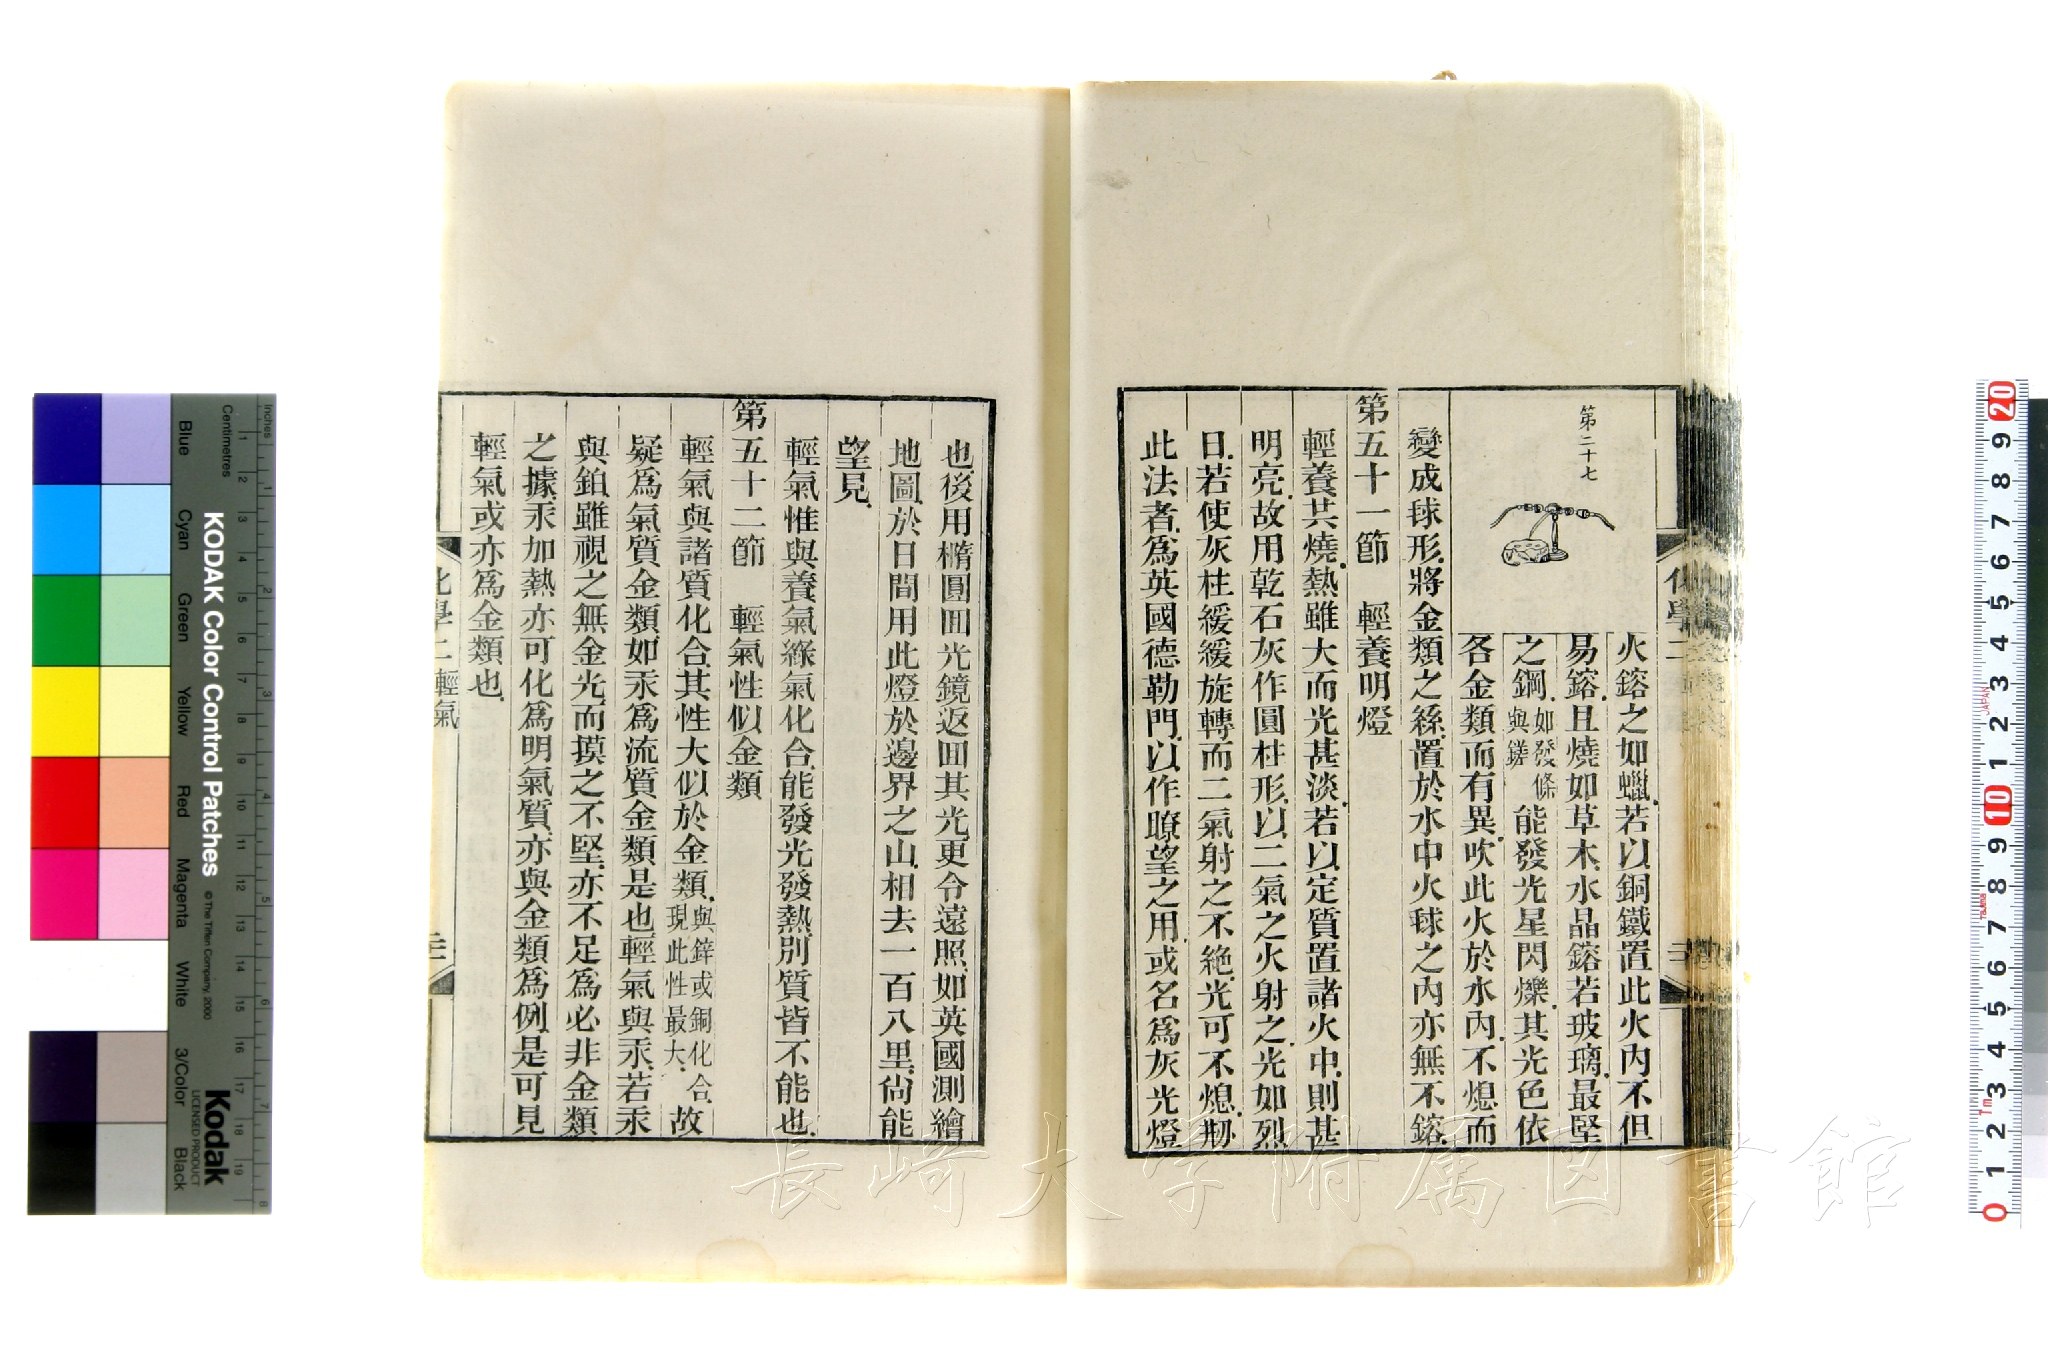 第二十七
火鎔之如蠟.若以銅鐵置此火內.不但
易鎔.且燒如草木.水晶鎔若玻璃.最堅
之鋼.如發條與鎈能發光星閃爍.其光色依
各金類而有異.吹此火於水內.不熄.而
變成球形.將金類之絲.置於水中火球之內.亦無不鎔.
第五十一節 輕養明燈
輕養共燒.熱雖大而光甚淡.若以定質置諸火中.則甚
明亮.故用乾石灰作圓柱形.以二氣之火射之.光如烈
日.若使灰柱緩緩旋轉.而二氣射之不絕.光可不熄.剏
此法者.爲英國德勒門.以作瞭望之用.或名爲灰光燈
化學二
也.後用橢圓囬光鏡.返囬其光.更令遠照.如英國測繪
地圖.於日間用此燈於邊界之山.相去一百八里.尙能
望見.
輕氣惟與養氣綠氣化合.能發光發熱.別質皆不能也.
第五十二節 輕氣性似金類
輕氣與諸質化合.其性大似於金類.與鋅或銅化合.現此性最大.故
疑爲氣質金類.如汞爲流質金類是也.輕氣與汞.若汞
與鉑.雖視之無金光.而摸之不堅.亦不足爲必非金類
之據.汞加熱.亦可化爲明氣質.亦與金類爲例.是可見
輕氣或亦爲金類也.
化學二 輕氣
KODAK Color Control Patches
© The Tiffen Company, 2000
Kodak
LICENSED PRODUCT
Inches
Centimetres
Blue
Cyan
Green
Yellow
Red
Magenta
White
3/Color
Black
長崎大学附属図書館